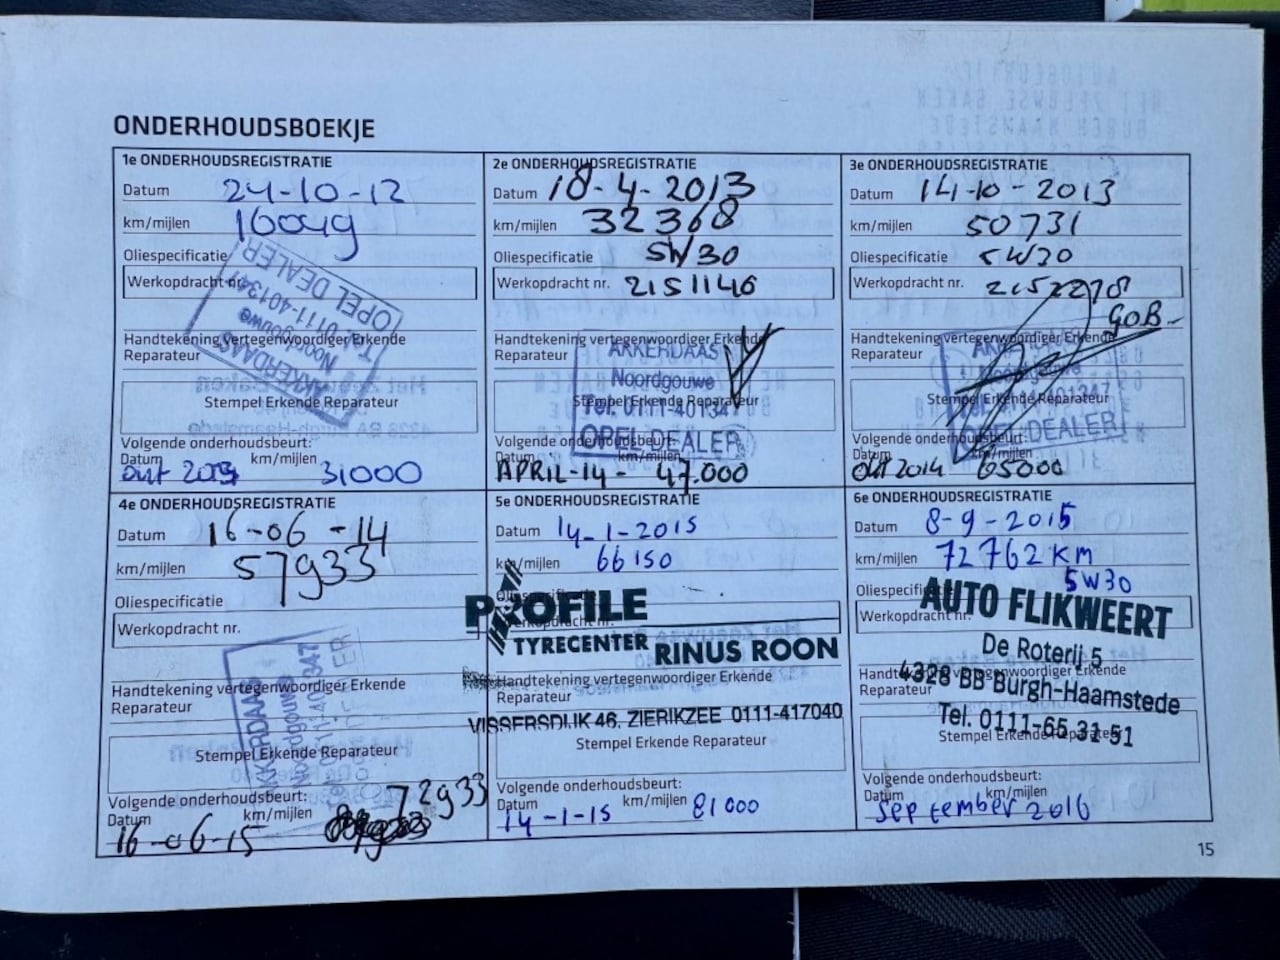 ONDERHOUDSBOEKJE
1e ONDERHOUDSREGISTRATIE
Datum 24-10-12
km/mijlen 16049
Oliespecificatie
Werkopdracht nr.
OPEL DEALER
Tel. 0111-401347
Noordgouwe
AKKERDAAS
Handtekening vertegenwoordiger Erkende
Reparateur
Stempel Erkende Reparateur
Volgende onderhoudsbeurt:
Datum km/mijlen 31000
2e ONDERHOUDSREGISTRATIE
Datum 18-4-2013
km/mijlen 32368
Oliespecificatie 5W30
Werkopdracht nr. 2151146
Handtekening vertegenwoordiger Erkende
Reparateur
AKKERDAAS
Noordgouwe
Stempel Erkende Reparateur
Tel. 0111-401347
OPEL DEALER
Volgende onderhoudsbeurt:
Datum km/mijlen
APRIL-14- 47.000
3e ONDERHOUDSREGISTRATIE
Datum 14-10-2013
km/mijlen 50731
Oliespecificatie 5W30
Werkopdracht nr. 2152278
GOB-
Handtekening vertegenwoordiger Erkende
Reparateur
Stempel Erkende Reparateur
401347
OPEL DEALER
Volgende onderhoudsbeurt:
Datum km/mijlen
okt 2014 65000
4e ONDERHOUDSREGISTRATIE
Datum 16-06-14
km/mijlen 57933
Oliespecificatie
Werkopdracht nr.
Handtekening vertegenwoordiger Erkende
Reparateur
AKKERDAAS
Noordgouwe
Stempel Erkende Reparateur
Volgende onderhoudsbeurt: 72933
Datum km/mijlen
16-06-15
5e ONDERHOUDSREGISTRATIE
Datum 14-1-2015
km/mijlen 66150
Oliespecificatie
PROFILE
Werkopdracht nr.
TYRECENTER RINUS ROON
Handtekening vertegenwoordiger Erkende
Reparateur
VISSERSDIJK 46, ZIERIKZEE 0111-417040
Stempel Erkende Reparateur
Volgende onderhoudsbeurt:
Datum km/mijlen 81000
14-1-15
6e ONDERHOUDSREGISTRATIE
Datum 8-9-2015
km/mijlen 72762 KM
Oliespecificatie 5W30
AUTO FLIKWEERT
Werkopdracht nr.
De Roterij 5
Handtekening vertegenwoordiger Erkende
4328 BB Burgh-Haamstede
Reparateur
Tel. 0111-65 31 51
Stempel Erkende Reparateur
Volgende onderhoudsbeurt:
Datum km/mijlen
september 2016
15